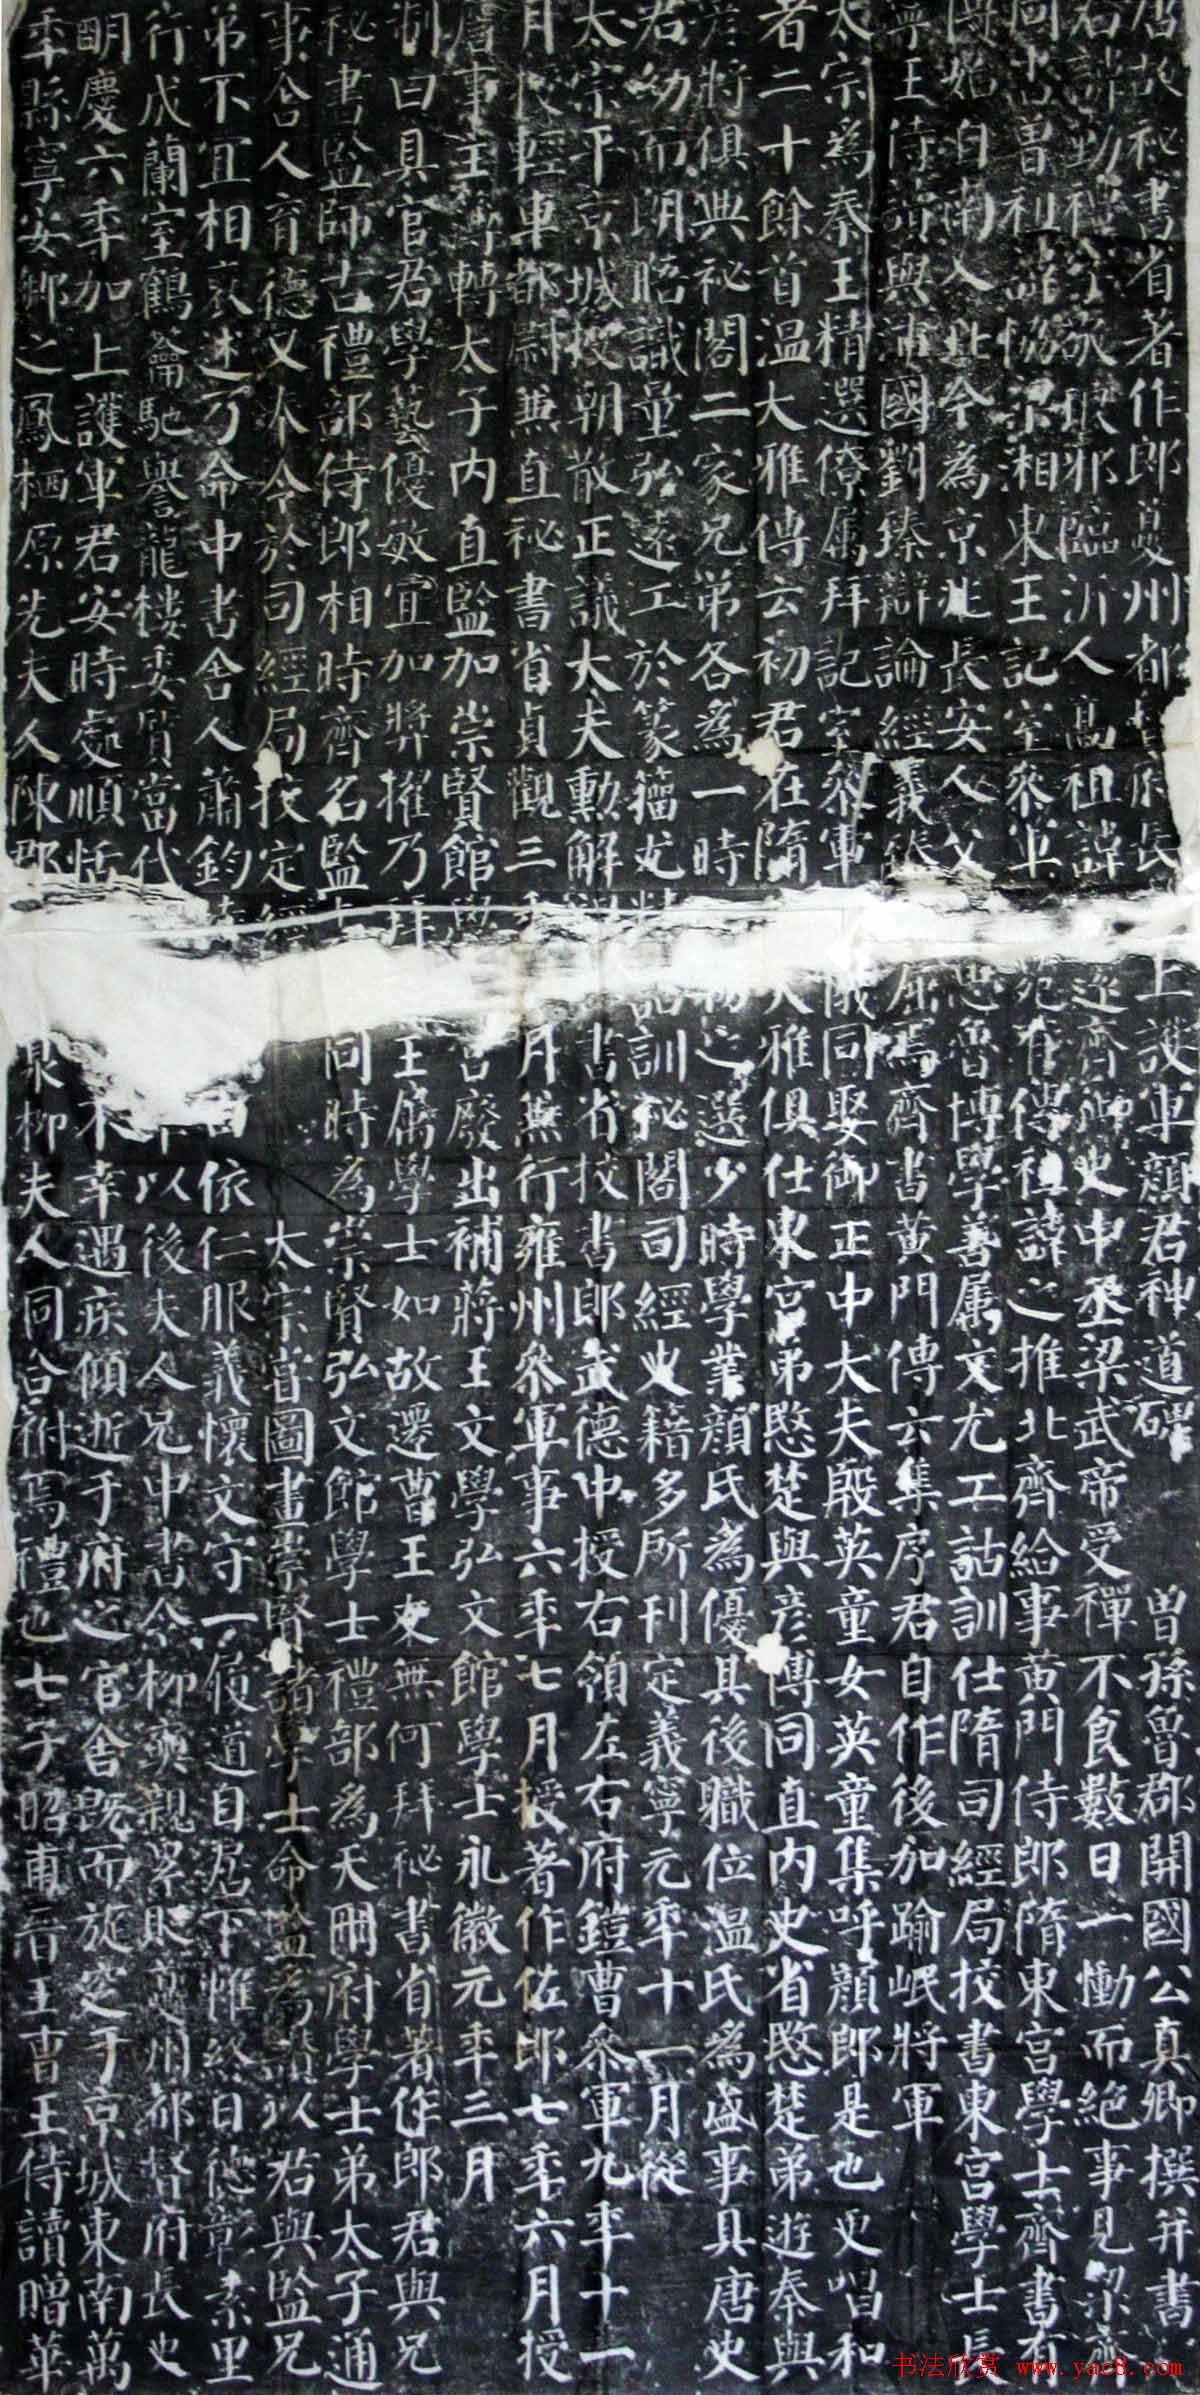 唐故秘書省著作郎夔州都督府長上護軍顏君神道碑 曾孫魯郡開國公真卿撰并書
君諱勤禮字敬琅邪臨沂人高祖諱逐齊御史中丞梁武帝受禪不食數日一慟而絕事見梁齊
周書曾祖諱協梁湘東王記室參軍苑有傳祖諱之推北齊給事黃門侍郎隋東宮學士齊書有
傳始自南入北今為京兆長安人父思魯博學善屬文尤工詁訓仕隋司經局校書東宮學士長
寧王侍讀與沛國劉臻辯論經義臻屈焉齊書黃門傳云集序君自作後加踰岷將軍
太宗為秦王精選僚屬拜記室參軍儀同娶御正中大夫殷英童女英童集呼顏郎是也更唱和
者二十餘首溫大雅傳云初君在隋大雅俱仕東宮弟愍楚與彥博同直內史省愍楚弟遊秦與
彥將俱典祕閣二家兄弟各為一時物之選少時學業顏氏為優其後職位溫氏為盛事具唐史
君幼而朗晤識量弘遠工於篆籀尤精詁訓秘閣司經史籍多所刊定義寧元年十一月從
太宗平京城授朝散正議大夫勳解褐書省校書郎武德中授右領左右府鎧曹參軍九年十一
月授輕車都尉兼直秘書省貞觀三年月兼行雍州參軍事六年七月授著作佐郎七年六月授
詹事主簿轉太子內直監加崇賢館學宮廢出補蔣王文學弘文館學士永徽元年三月
制曰具官君學藝優敏宜加獎擢乃拜王屬學士如故遷曹王友無何拜秘書省著作郎君與兄
秘書監師古禮部侍郎相時齊名監同時為崇賢弘文館學士禮部為天冊府學士弟太子通
事舍人育德又奉令於司經局校定經太宗嘗圖畫崇賢諸學士命監為讚以君與監兄
弟不宜相褒述乃命中書舍人蕭鈞依仁服義懷文守一履道自居下惟終日德彰素里
行成蘭室鶴籥馳譽龍樓委質當代以後夫人兄中書令柳奭親累貶夔州都督府長史
明慶六年加上護軍君安時處順恬不幸遇疾傾逝于府之官舍既而旋窆于京城東南萬
年縣寧安鄉之鳳栖原先夫人陳郡泉柳夫人同合祔焉禮也七子昭甫晉王曹王侍讀贈華
书法欣赏 www.yac8.com